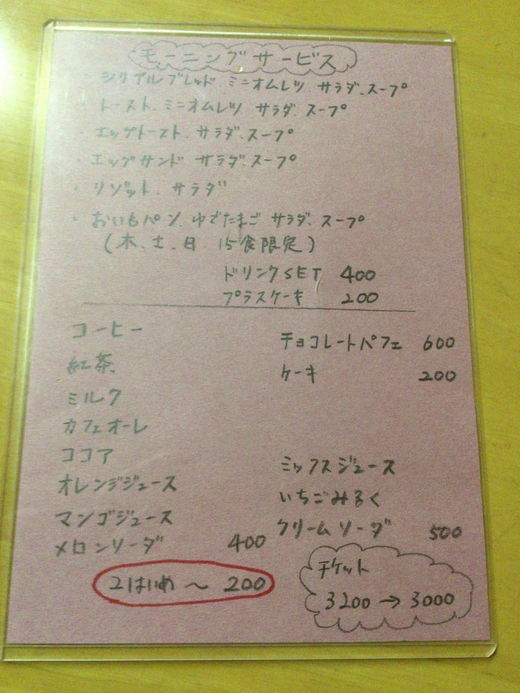 モーニングサービス
・シリアルブレッド、ミニオムレツ サラダ、スープ
・トースト、ミニオムレツ サラダ、スープ
・エッグトースト、サラダ、スープ
・エッグサンド サラダ、スープ
・リゾット、サラダ
・おいもパン、ゆでたまご サラダ、スープ
(木、土、日、15食限定)
ドリンクSET 400
プラスケーキ 200
コーヒー
紅茶
ミルク
カフェオーレ
ココア
オレンジジュース
マンゴジュース
メロンソーダ 400
2はいめ〜 200
チョコレートパフェ 600
ケーキ 200
ミックスジュース
いちごみるく
クリームソーダ 500
チケット
3200→3000